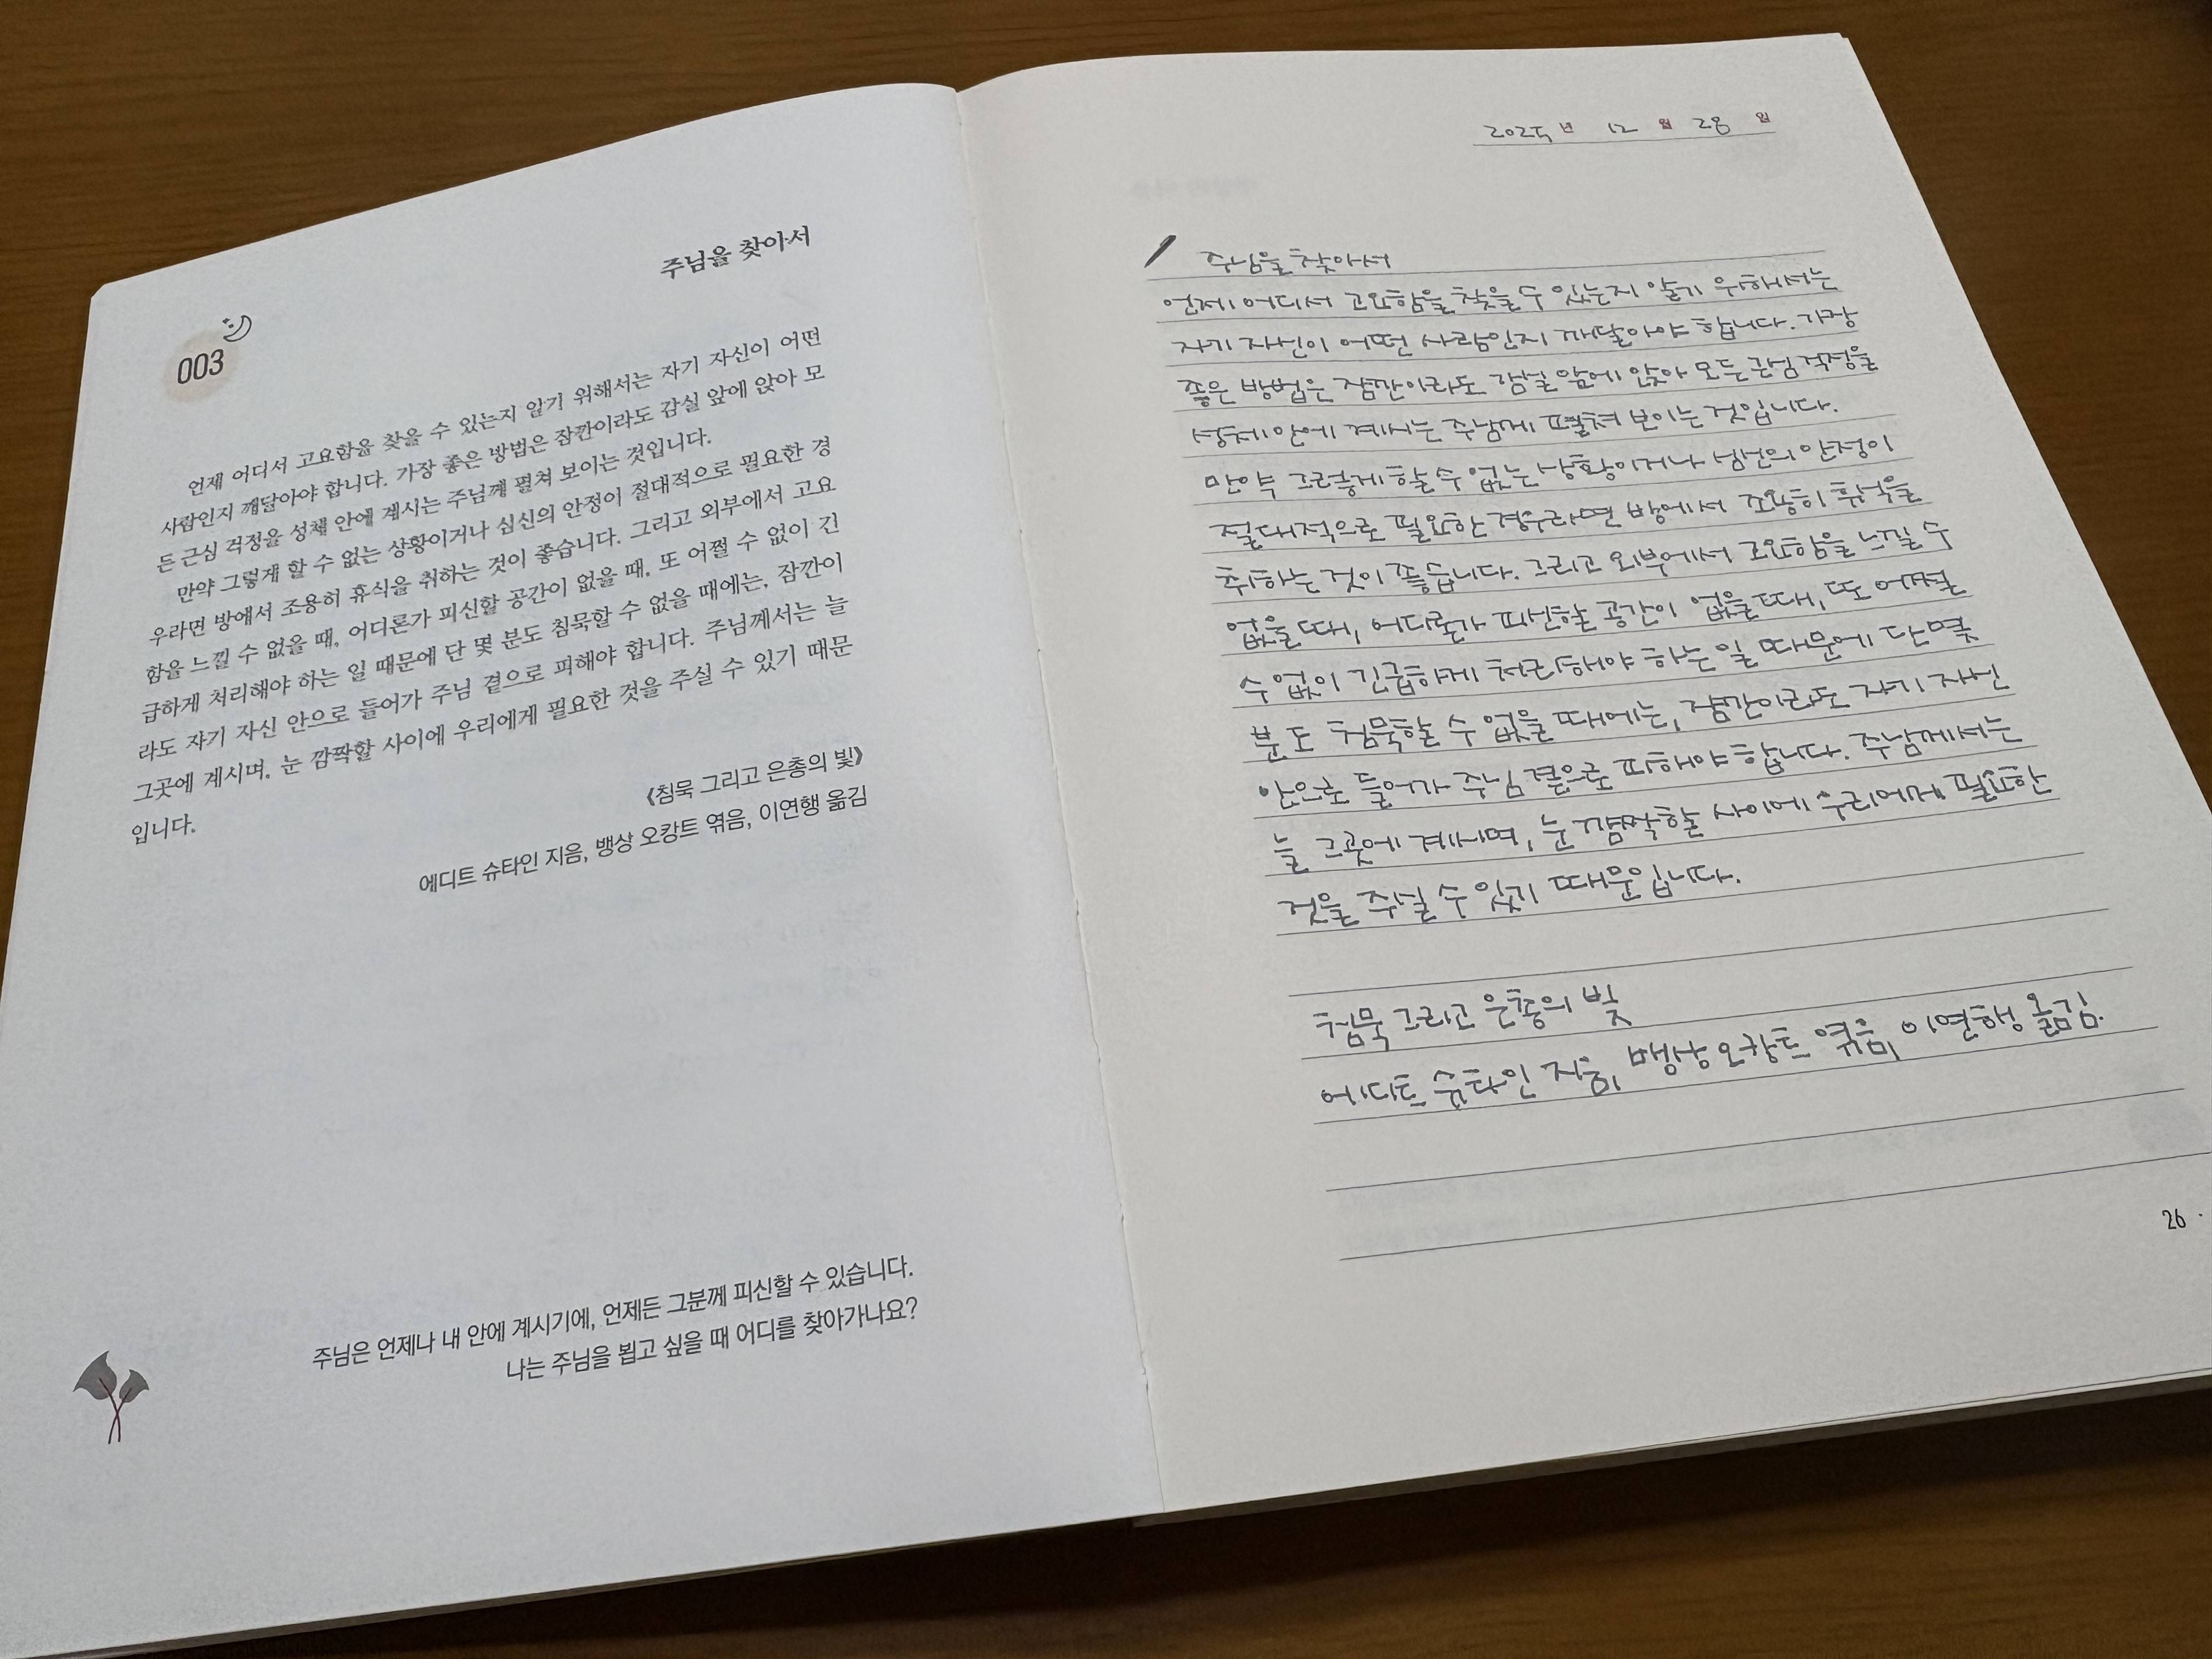 주님을 찾아서
003
언제 어디서 고요함을 찾을 수 있는지 알기 위해서는 자기 자신이 어떤
사람인지 깨달아야 합니다. 가장 좋은 방법은 잠깐이라도 감실 앞에 앉아 모
든 근심 걱정을 성체 안에 계시는 주님께 펼쳐 보이는 것입니다.
만약 그렇게 할 수 없는 상황이거나 심신의 안정이 절대적으로 필요한 경
우라면 방에서 조용히 휴식을 취하는 것이 좋습니다. 그리고 외부에서 고요
함을 느낄 수 없을 때, 어디론가 피신할 공간이 없을 때, 또 어쩔 수 없이 긴
급하게 처리해야 하는 일 때문에 단 몇 분도 침묵할 수 없을 때에는, 잠깐이
라도 자기 자신 안으로 들어가 주님 곁으로 피해야 합니다. 주님께서는 늘
그곳에 계시며, 눈 깜짝할 사이에 우리에게 필요한 것을 주실 수 있기 때문
입니다.
《침묵 그리고 은총의 빛》
에디트 슈타인 지음, 뱅상 오캉트 엮음, 이연행 옮김
주님은 언제나 내 안에 계시기에, 언제든 그분께 피신할 수 있습니다.
나는 주님을 뵙고 싶을 때 어디를 찾아가나요?
2025년 12월 28일
주님을 찾아서
언제 어디서 고요함을 찾을 수 있는지 알기 위해서는
자기 자신이 어떤 사람인지 깨달아야 합니다. 가장
좋은 방법은 잠깐이라도 감실 앞에 앉아 모든 근심 걱정을
성체 안에 계시는 주님께 펼쳐 보이는 것입니다.
만약 그렇게 할 수 없는 상황이거나 심신의 안정이
절대적으로 필요한 경우라면 방에서 조용히 휴식을
취하는 것이 좋습니다. 그리고 외부에서 고요함을 느낄 수
없을 때, 어디론가 피신할 공간이 없을 때, 또 어쩔
수 없이 긴급하게 처리해야 하는 일 때문에 단 몇
분도 침묵할 수 없을 때에는, 잠깐이라도 자기 자신
안으로 들어가 주님 곁으로 피해야 합니다. 주님께서는
늘 그곳에 계시며, 눈 깜짝할 사이에 우리에게 필요한
것을 주실 수 있기 때문입니다.
침묵 그리고 은총의 빛
에디트 슈타인 지음, 뱅상 오캉트 엮음, 이연행 옮김.
26